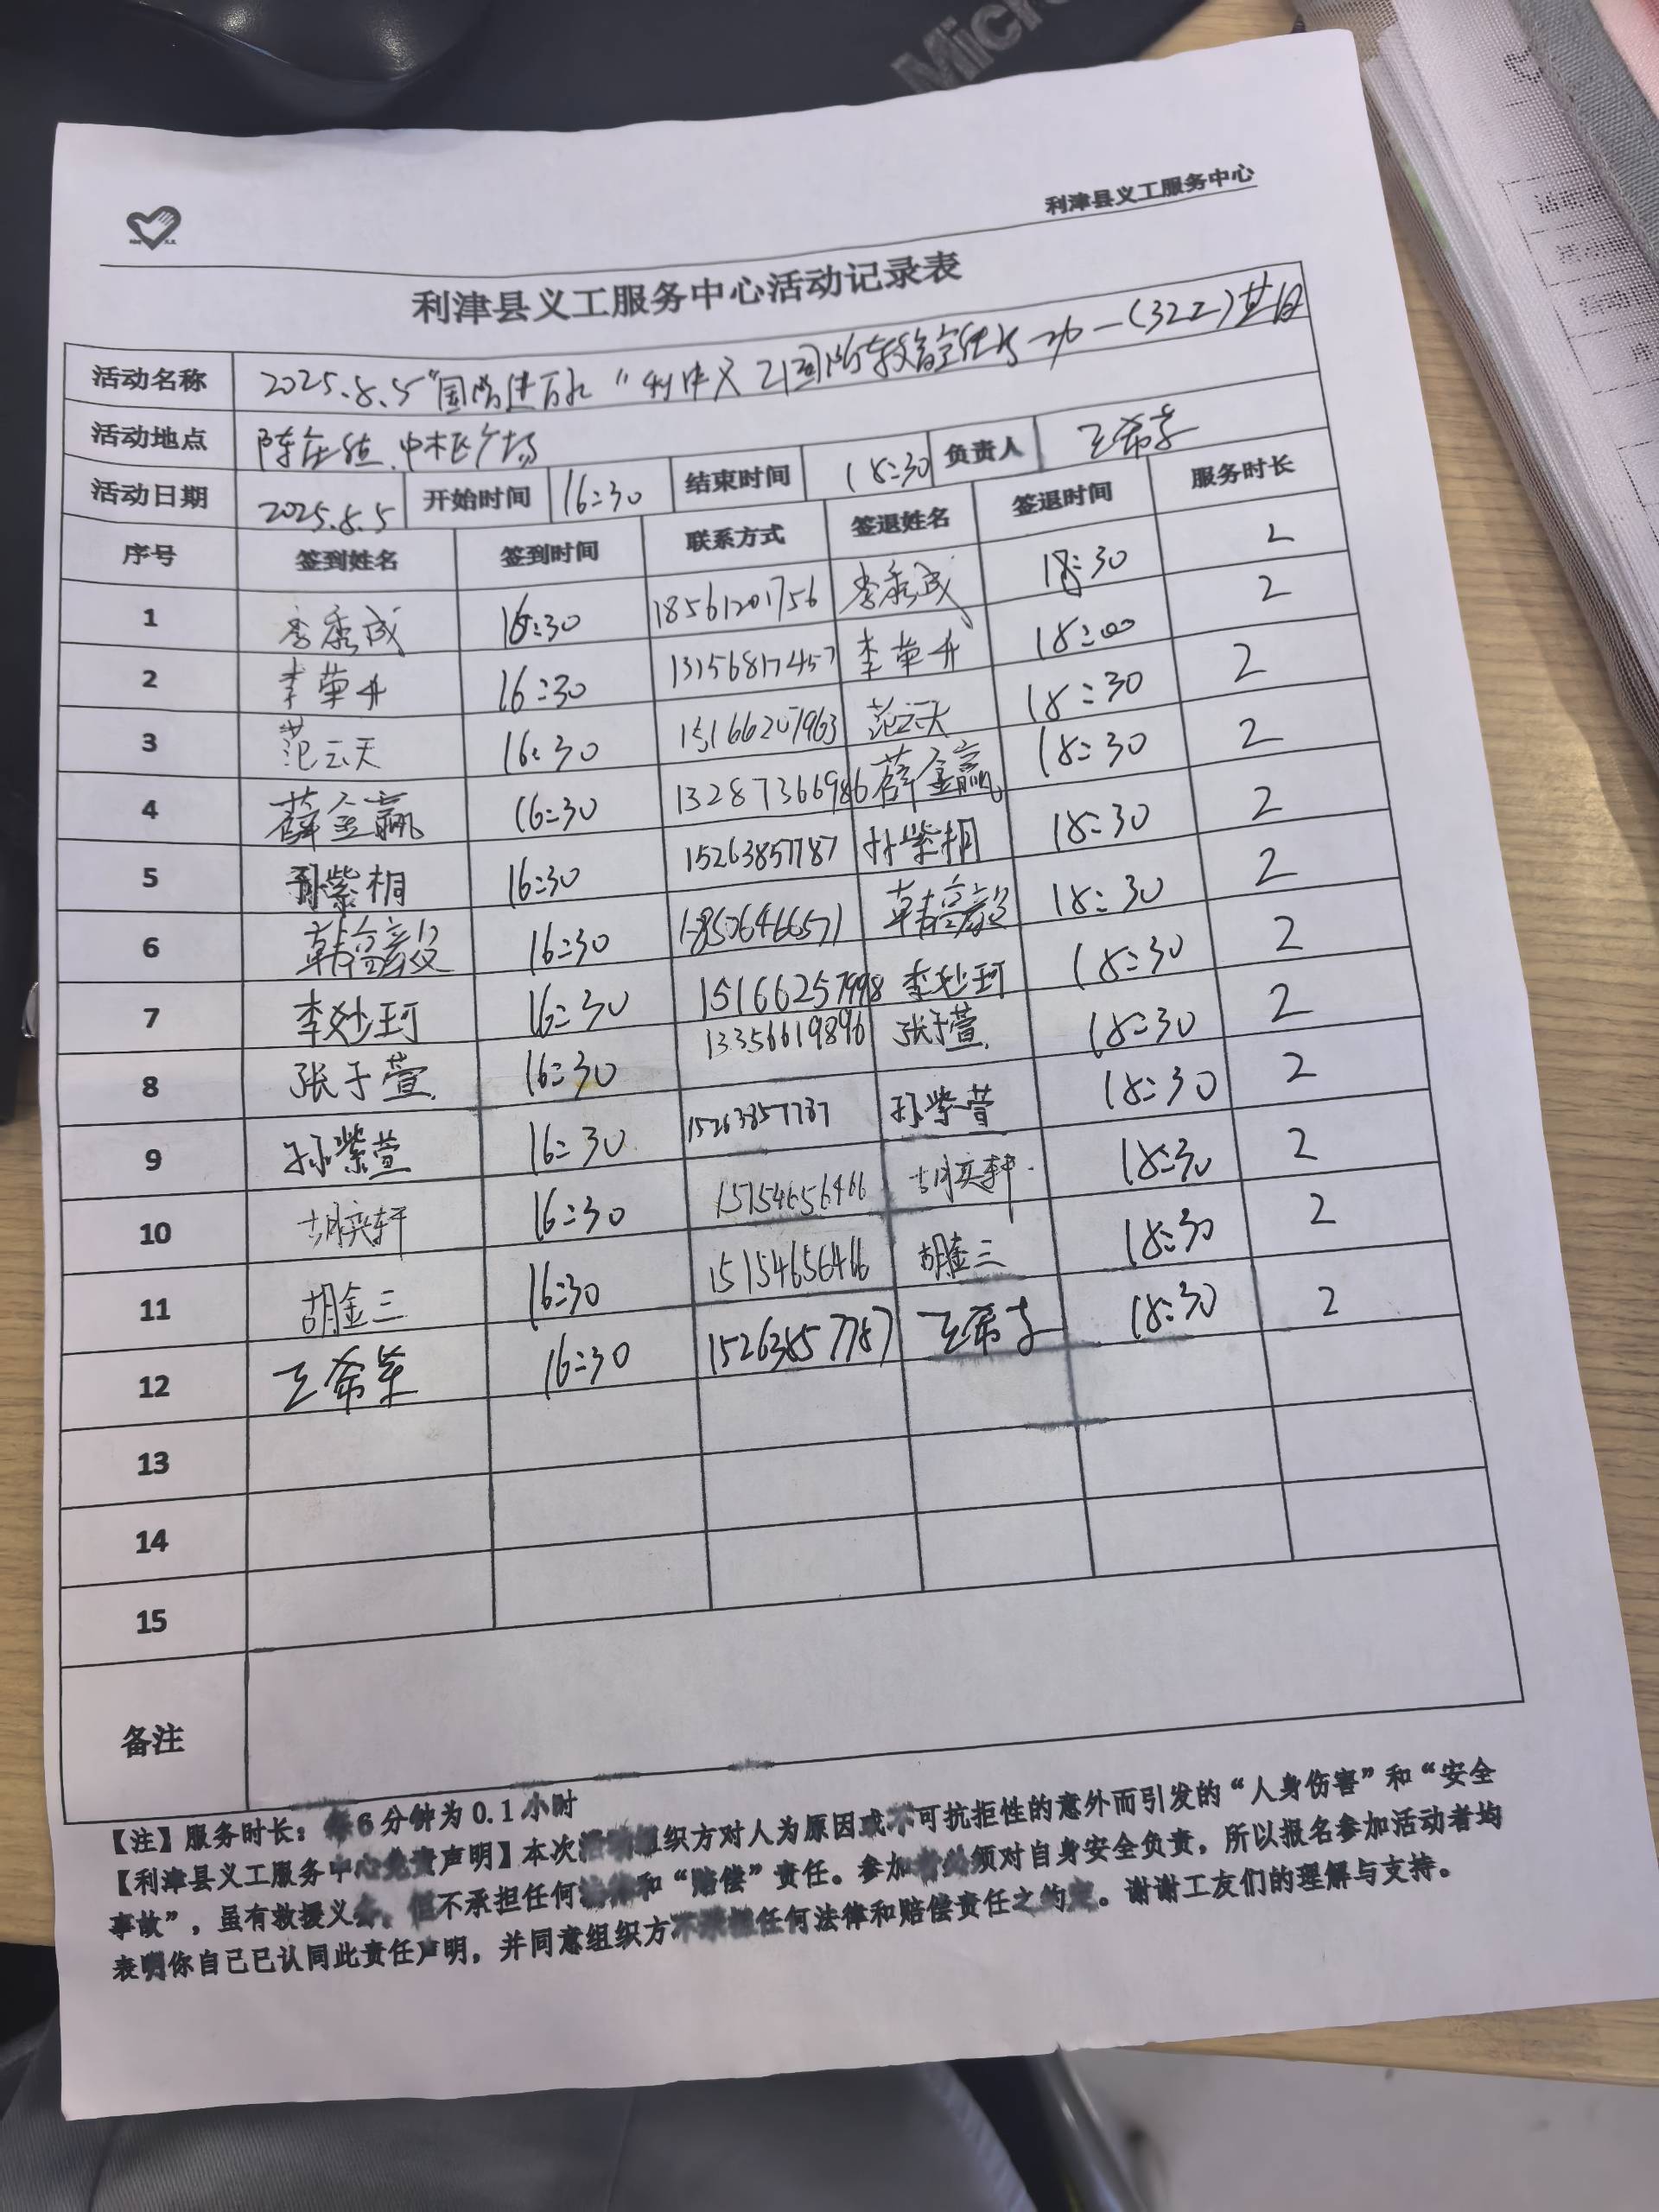 Micr
利津县义工服务中心
利津县义工服务中心活动记录表
活动名称 2025.8.5“国学进万家”利津义工国学教育宣传 (322)其日
活动地点 陈庄镇.中心广场
活动日期 2025.8.5 开始时间 16:30 结束时间 18:30 负责人 王希孝
序号 签到姓名 签到时间 联系方式 签退姓名 签退时间 服务时长
1 李秀成 16:30 18561201756 李秀成 18:30 2
2 李荣升 16:30 13156817457 李荣升 18:00 2
3 范云天 16:30 15166207963 范云天 18:30 2
4 薛金赢 16:30 13287366986 薛金赢 18:30 2
5 孙紫桐 16:30 15263857787 孙紫桐 18:30 2
6 韩毅 16:30 18506466571 韩毅 18:30 2
7 李妙珂 16:30 15166257998 李妙珂 18:30 2
8 张于萱 16:30 13356619896 张于萱 18:30 2
9 孙紫萱 16:30 15263857787 孙紫萱 18:30 2
10 胡奕轩 16:30 15154656466 胡奕轩 18:30 2
11 胡金三 16:30 15154656466 胡金三 18:30 2
12 王希孝 16:30 15263857787 王希孝 18:30 2
13
14
15
备注
【注】服务时长：每6分钟为0.1小时
【利津县义工服务中心免责声明】本次活动组织方对人为原因或不可抗拒性的意外而引发的“人身伤害”和“安全
事故”，虽有救援义务，但不承担任何法律和“赔偿”责任。参加者必须对自身安全负责，所以报名参加活动者均
表明你自己已认同此责任声明，并同意组织方不承担任何法律和赔偿责任之约定。谢谢工友们的理解与支持。